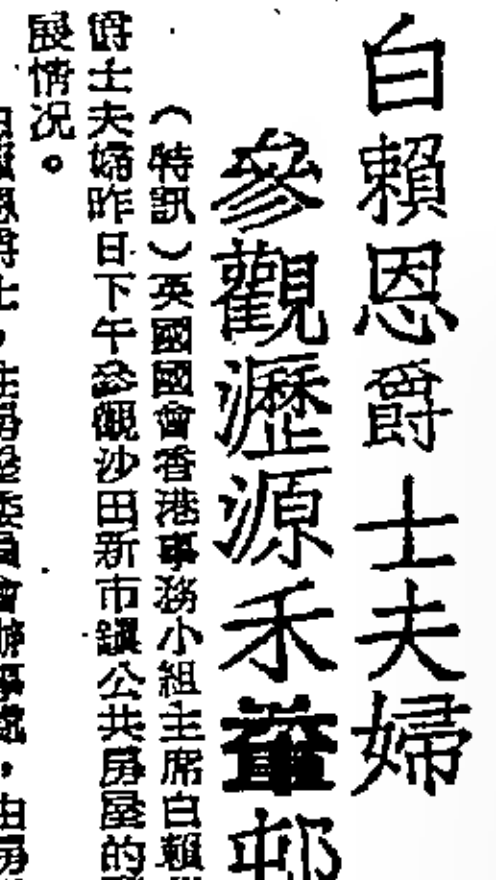 白賴恩爵士夫婦
參觀瀝源禾輋邨
（特訊）英國國會香港事務小組主席白賴
爵士夫婦昨日下午參觀沙田新市鎮公共房屋的
展情况。
爵士，在房屋委員會辦事處，由房